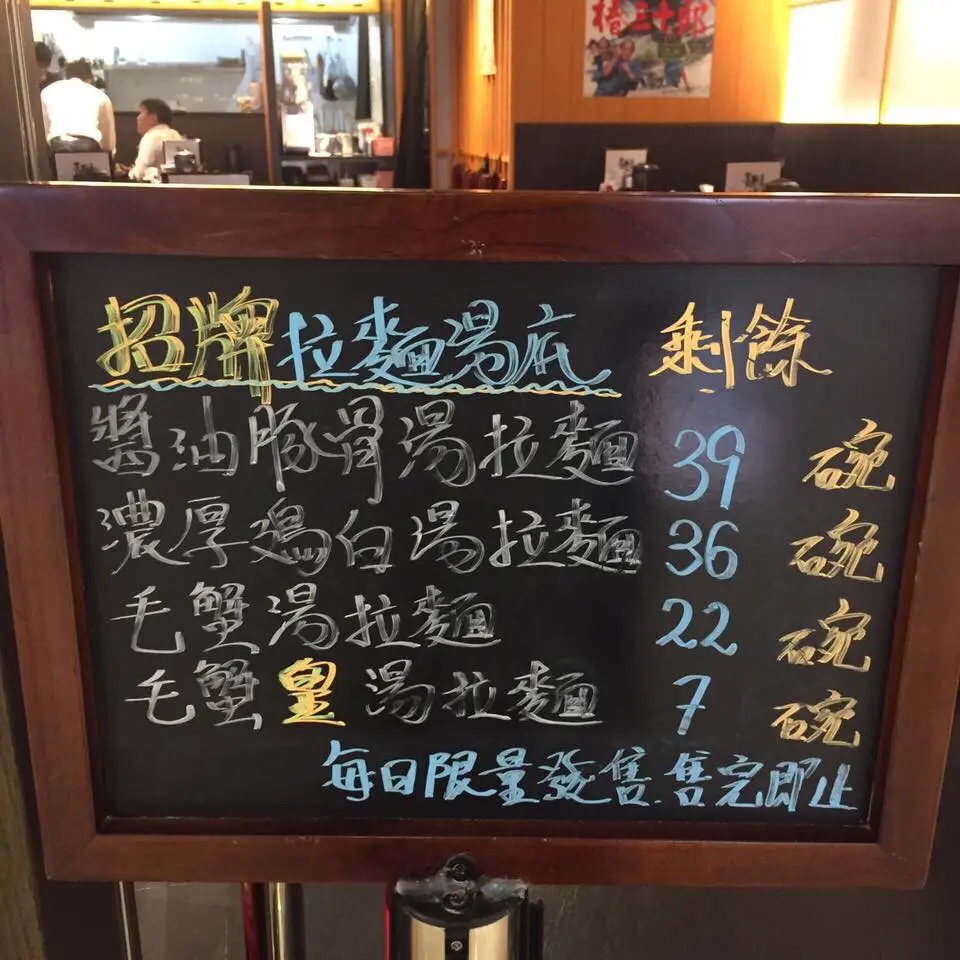 椿三十郎
招牌拉麵湯底 剩餘
醬油豚骨湯拉麵 39 碗
濃厚鶏白湯拉麵 36 碗
毛蟹湯拉麵 22 碗
毛蟹皇湯拉麵 7 碗
每日限量發售,售完即止